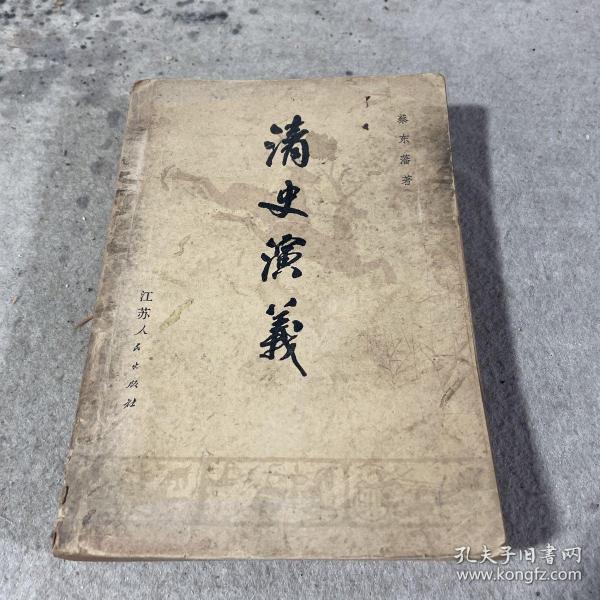 蔡东藩著
清史演義
江苏人民出版社
孔夫子旧书网
www.kongfz.com